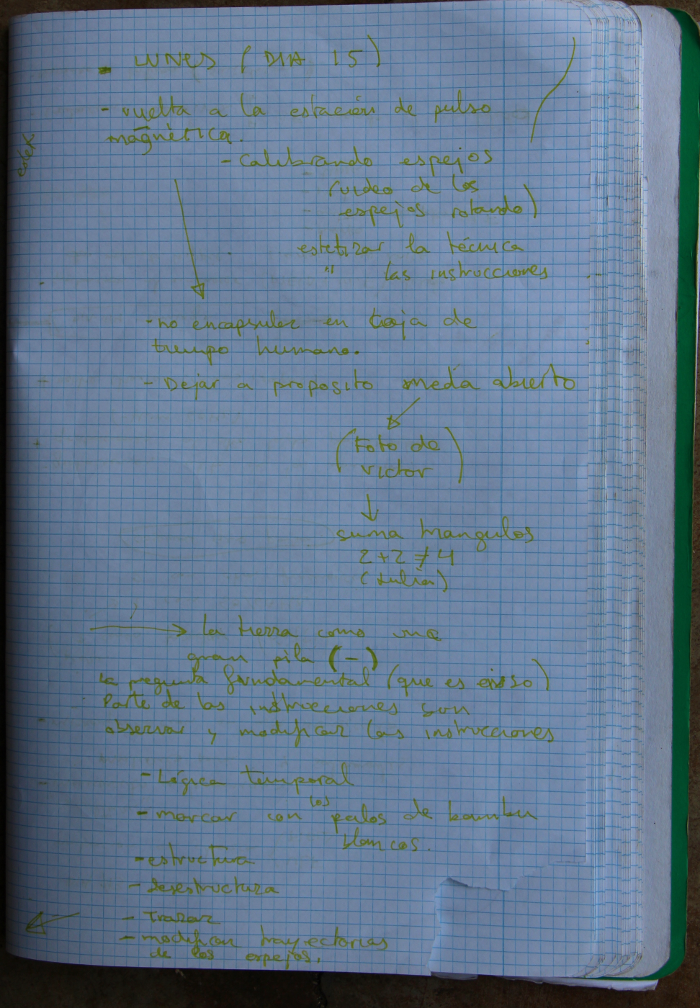 . LUNES (DIA 15)
- vuelta a la estación de pulso
magnética.
- Calibrando espejos
(video de los
espejos rotando)
estetizar la técnica
" las instrucciones
- no encapsular en caja de
tiempo humano.
- Dejar a proposito media abierto
(Foto de
victor)
suma triangulos
2+2≠4
(Julia)
la tierra como una
gran pila (-)
la pregunta fundamental (que es esso)
Parte de las instrucciones son
observar y modificar las instrucciones
- Lógica temporal
- marcar con los palos de bambu
blancos.
- estructura
- Desestructura
- Trazar
- modificar trayectorias
de los espejos.